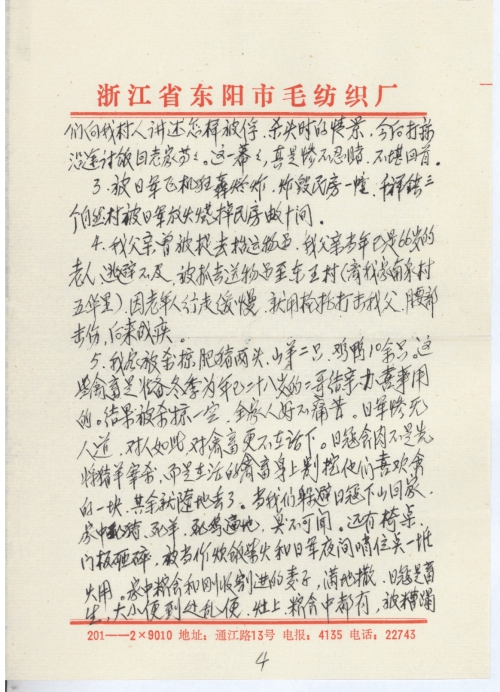 浙江省东阳市毛纺织厂
们向我村人讲述怎样被俘、杀头时的情景,今后打算
沿途讨饭回老家等。这一幕幕,真是惨不忍睹,不堪回首。
3.被日军飞机狂轰烂炸,炸毁民房一幢,
自然村被日军放火烧掉民房数十间。
4.我父亲曾被捉去抬运物品,我父亲当年已是66岁的
老人,逃避不及,被抓去送物品至东王村(离我家南岑村
五华里),因老年人行走缓慢,就用枪托打击我父,腰部
击伤,后来成疾。
5.我家被杀掠肥猪两头,山羊二只,鸡鸭10余只。这
些禽畜是准备冬季为年已二十八岁的二哥结亲办喜事用
的。结果被杀掠一空,全家人好不痛苦。日军惨无
人道,对人如此,对禽畜更不在话下。日寇食肉不是先
将猪羊宰杀,而是在活的禽畜身上割掉他们喜欢食
的一块,其余就随地丢了。当我们躲避日寇下山回家,
家中死猪、死羊、死鸡遍地,臭不可闻。还有椅桌、
门板砸碎,被当作炊饭柴火和日军夜间哨位点一堆
火用。家中粮食和刚收割进的麦子,满地撒,日寇是畜
生,大小便到处乱便,灶上粮食中都有,被糟蹋
201——2×9010 地址:通江路13号 电报:4135 电话:22743
4